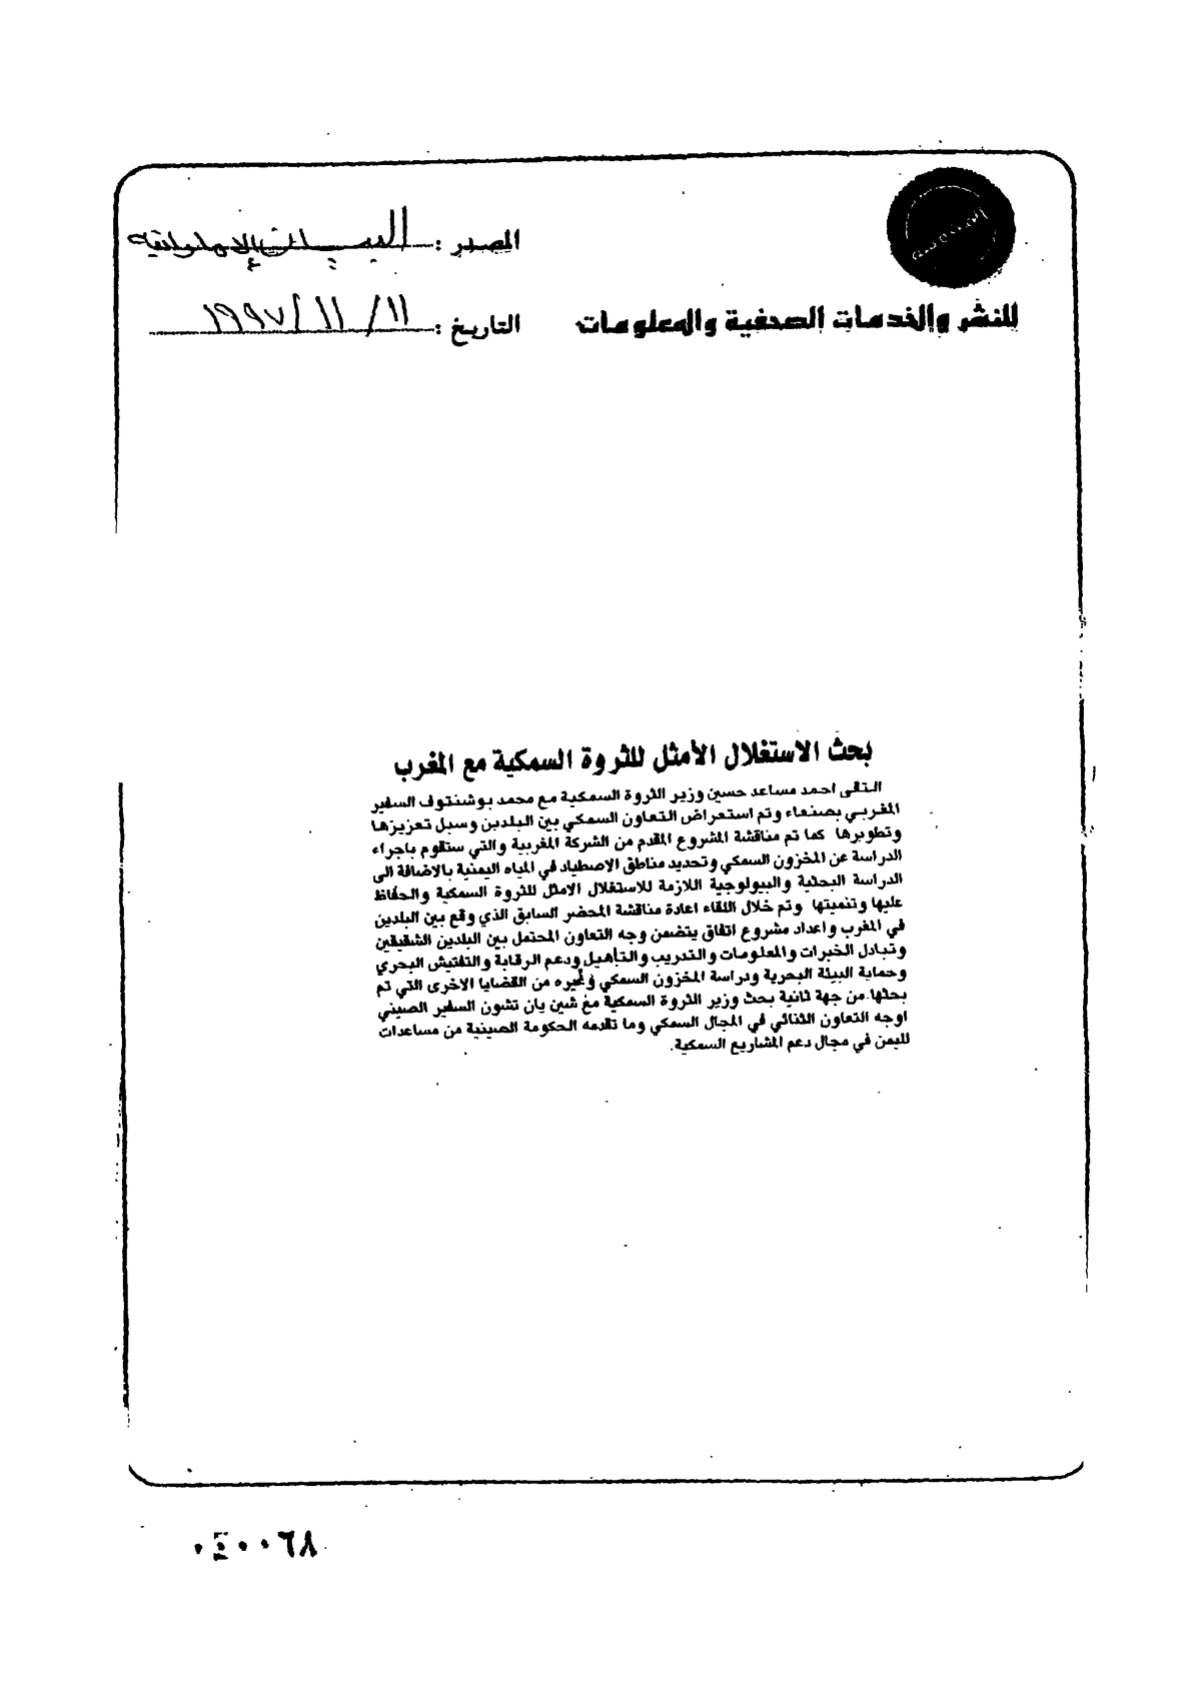 المصدر : البيان الإماراتية
للنشر والخدمات الصحفية والمعلومات
التاريخ : ١١/ ١١/ ١٩٩٧
بحث الاستغلال الأمثل للثروة السمكية مع المغرب
التقى احمد مساعد حسين وزير الثروة السمكية مع محمد بوشنتوف السفير
المغربي بصنعاء وتم استعراض التعاون السمكي بين البلدين وسبل تعزيزها
وتطويرها كما تم مناقشة المشروع المقدم من الشركة المغربية والتي ستقوم باجراء
الدراسة عن المخزون السمكي وتحديد مناطق الاصطياد في المياه اليمنية بالاضافة الى
الدراسة البحثية والبيولوجية اللازمة للاستغلال الامثل للثروة السمكية والحفاظ
عليها وتنميتها وتم خلال اللقاء اعادة مناقشة المحضر السابق الذي وقع بين البلدين
في المغرب واعداد مشروع اتفاق يتضمن وجه التعاون المحتمل بين البلدين الشقيقين
وتبادل الخبرات والمعلومات والتدريب والتأهيل ودعم الرقابة والتفتيش البحري
وحماية البيئة البحرية ودراسة المخزون السمكي وغيره من القضايا الاخرى التي تم
بحثها. من جهة ثانية بحث وزير الثروة السمكية مع شين يان تشون السفير الصيني
اوجه التعاون الثنائي في المجال السمكي وما تقدمه الحكومة الصينية من مساعدات
لليمن في مجال دعم المشاريع السمكية.
٠٤٠٠٦٨